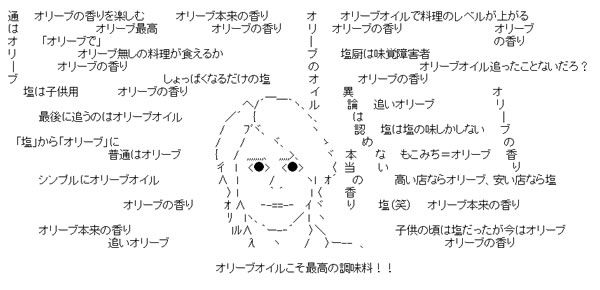 通　オリーブの香りを楽しむ　オリーブ本来の香り　オ　オリーブオイルで料理のレベルが上がる
は　オリーブ最高　オリーブの香り　リ　オリーブの香り　オリーブ
オ　「オリーブで」　｜　の香り
リ　オリーブ無しの料理が食えるか　ブ　塩厨は味覚障害者
｜　オリーブの香り　の　オリーブオイル追ったことないだろ？
ブ　しょっぱくなるだけの塩　オ　オリーブの香り
塩は子供用　オリーブの香り　イ　異　オ
ル　論　追いオリーブ　リ
最後に追うのはオリーブオイル　は　｜
認　塩は塩の味しかしない　ブ
「塩」から「オリーブ」に　め　の
普通はオリーブ　本　な　もこみち＝オリーブ　香
当　い　り
シンプルにオリーブオイル　の　高い店ならオリーブ、安い店なら塩
香
オリーブの香り　り　塩（笑）　オリーブ本来の香り
オリーブ本来の香り　子供の頃は塩だったが今はオリーブ
追いオリーブ　オリーブの香り
オリーブオイルこそ最高の調味料！！